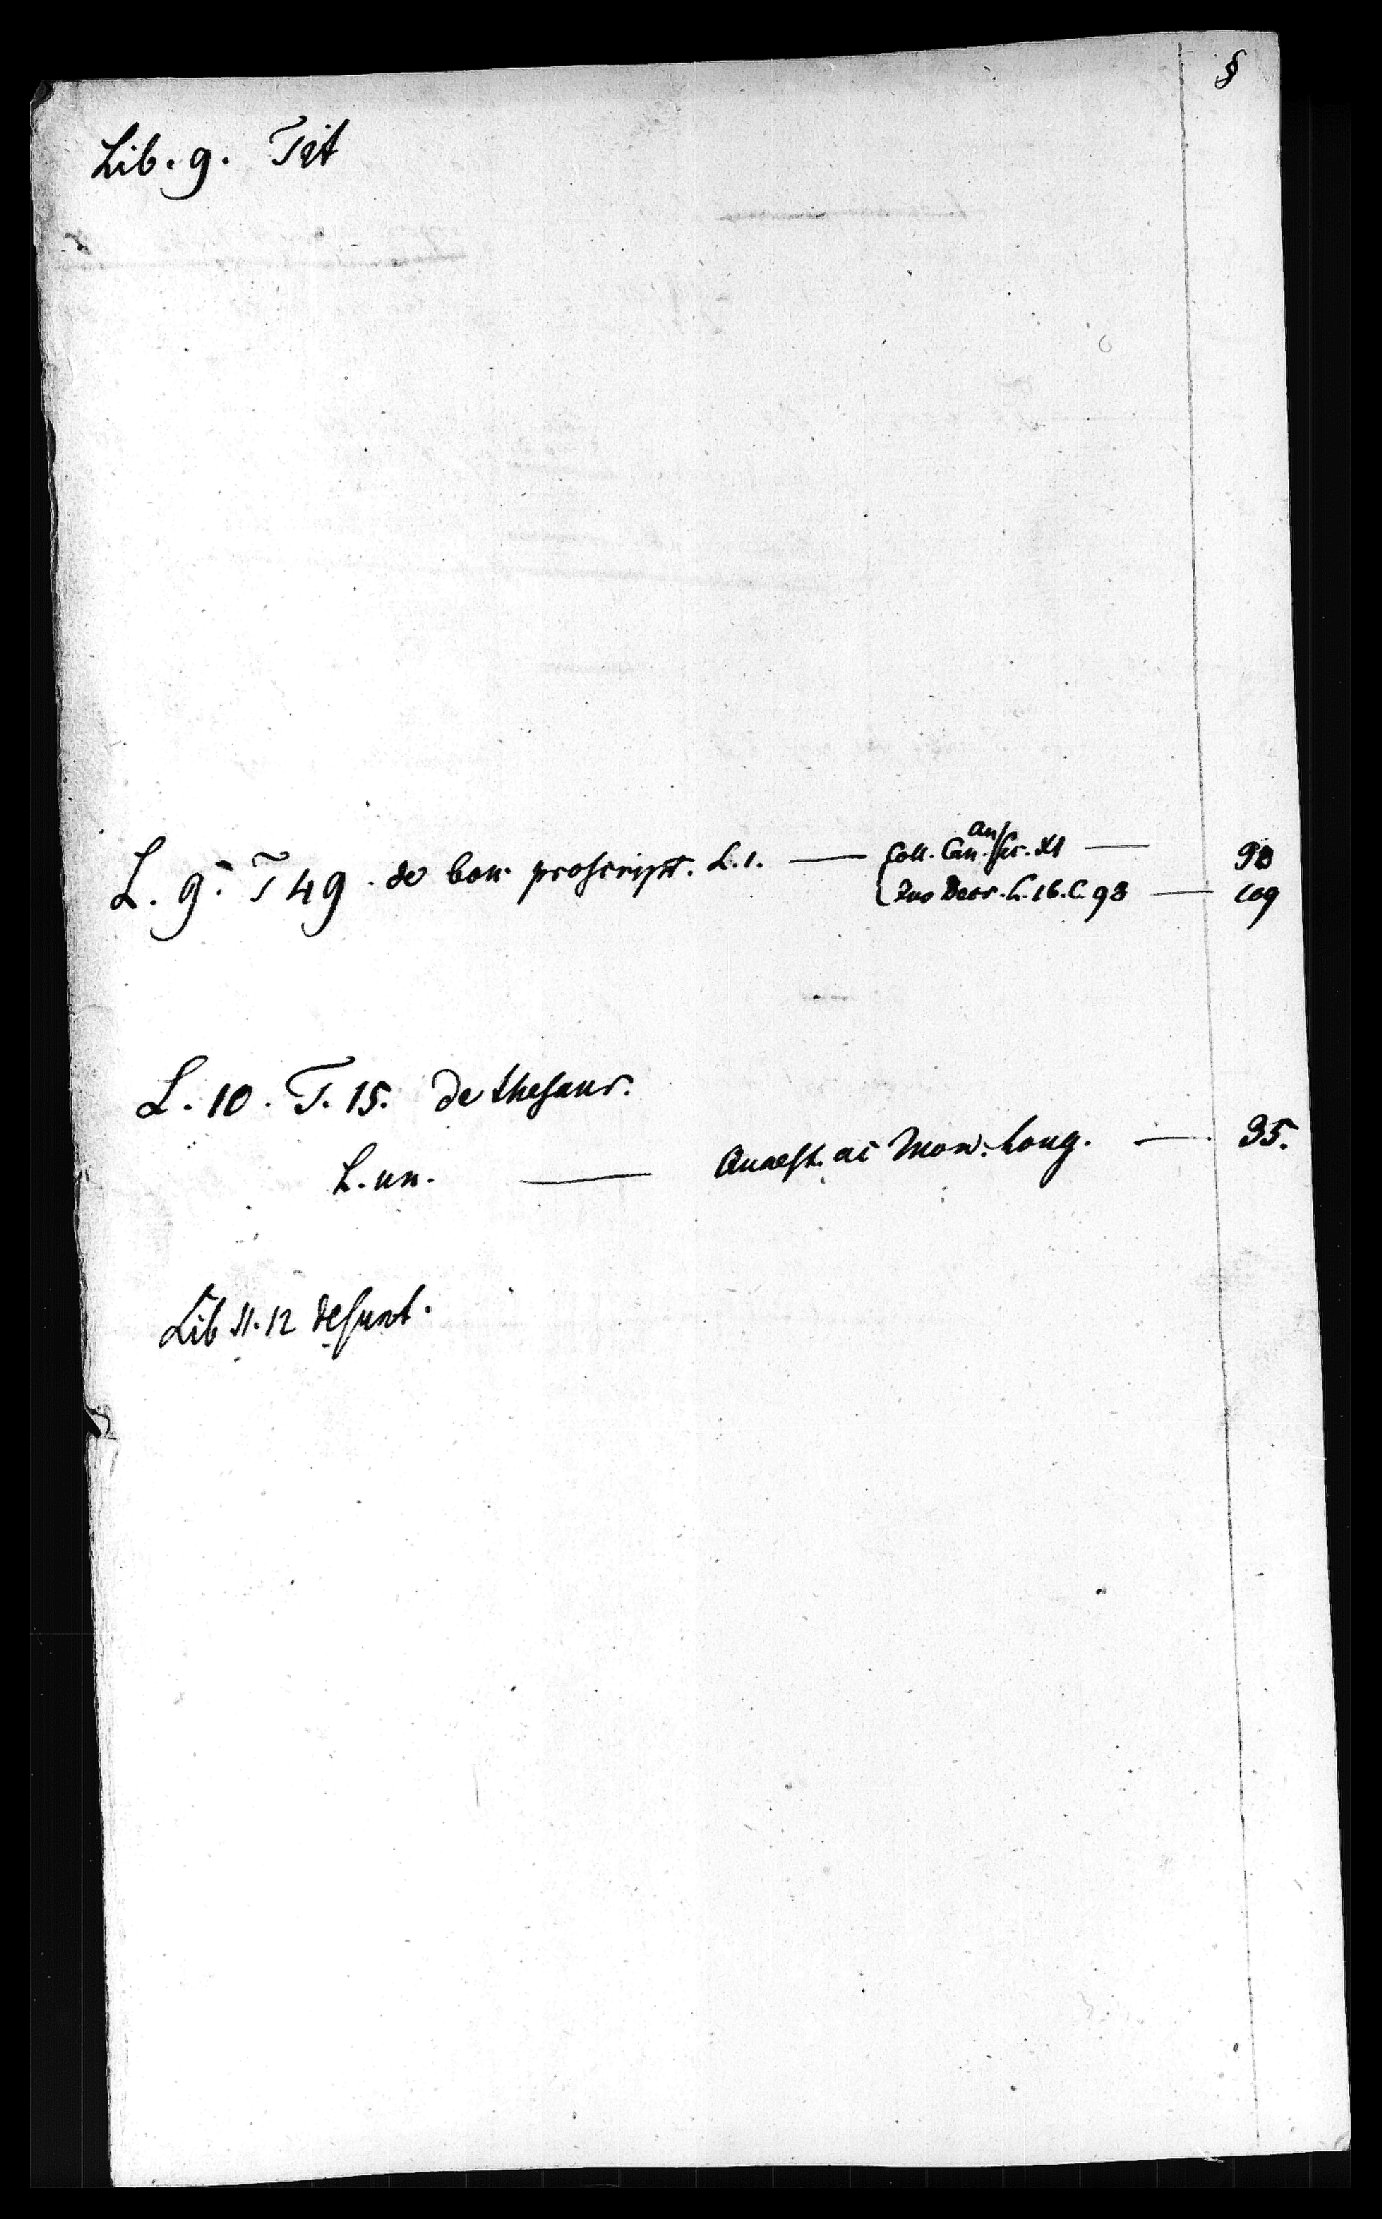 §
Lib. 9. Tit
L. 9. T 49. de bon. proscript. L. 1. — Coll. Can. Ans. sec. XI — 98
Ivo Decr. L. 16. C. 98 — 109
L. 10. T. 15. De thesaur.
L. un. — Quaest. ac Mon. Long. — 35.
Lib 11. 12 desunt.